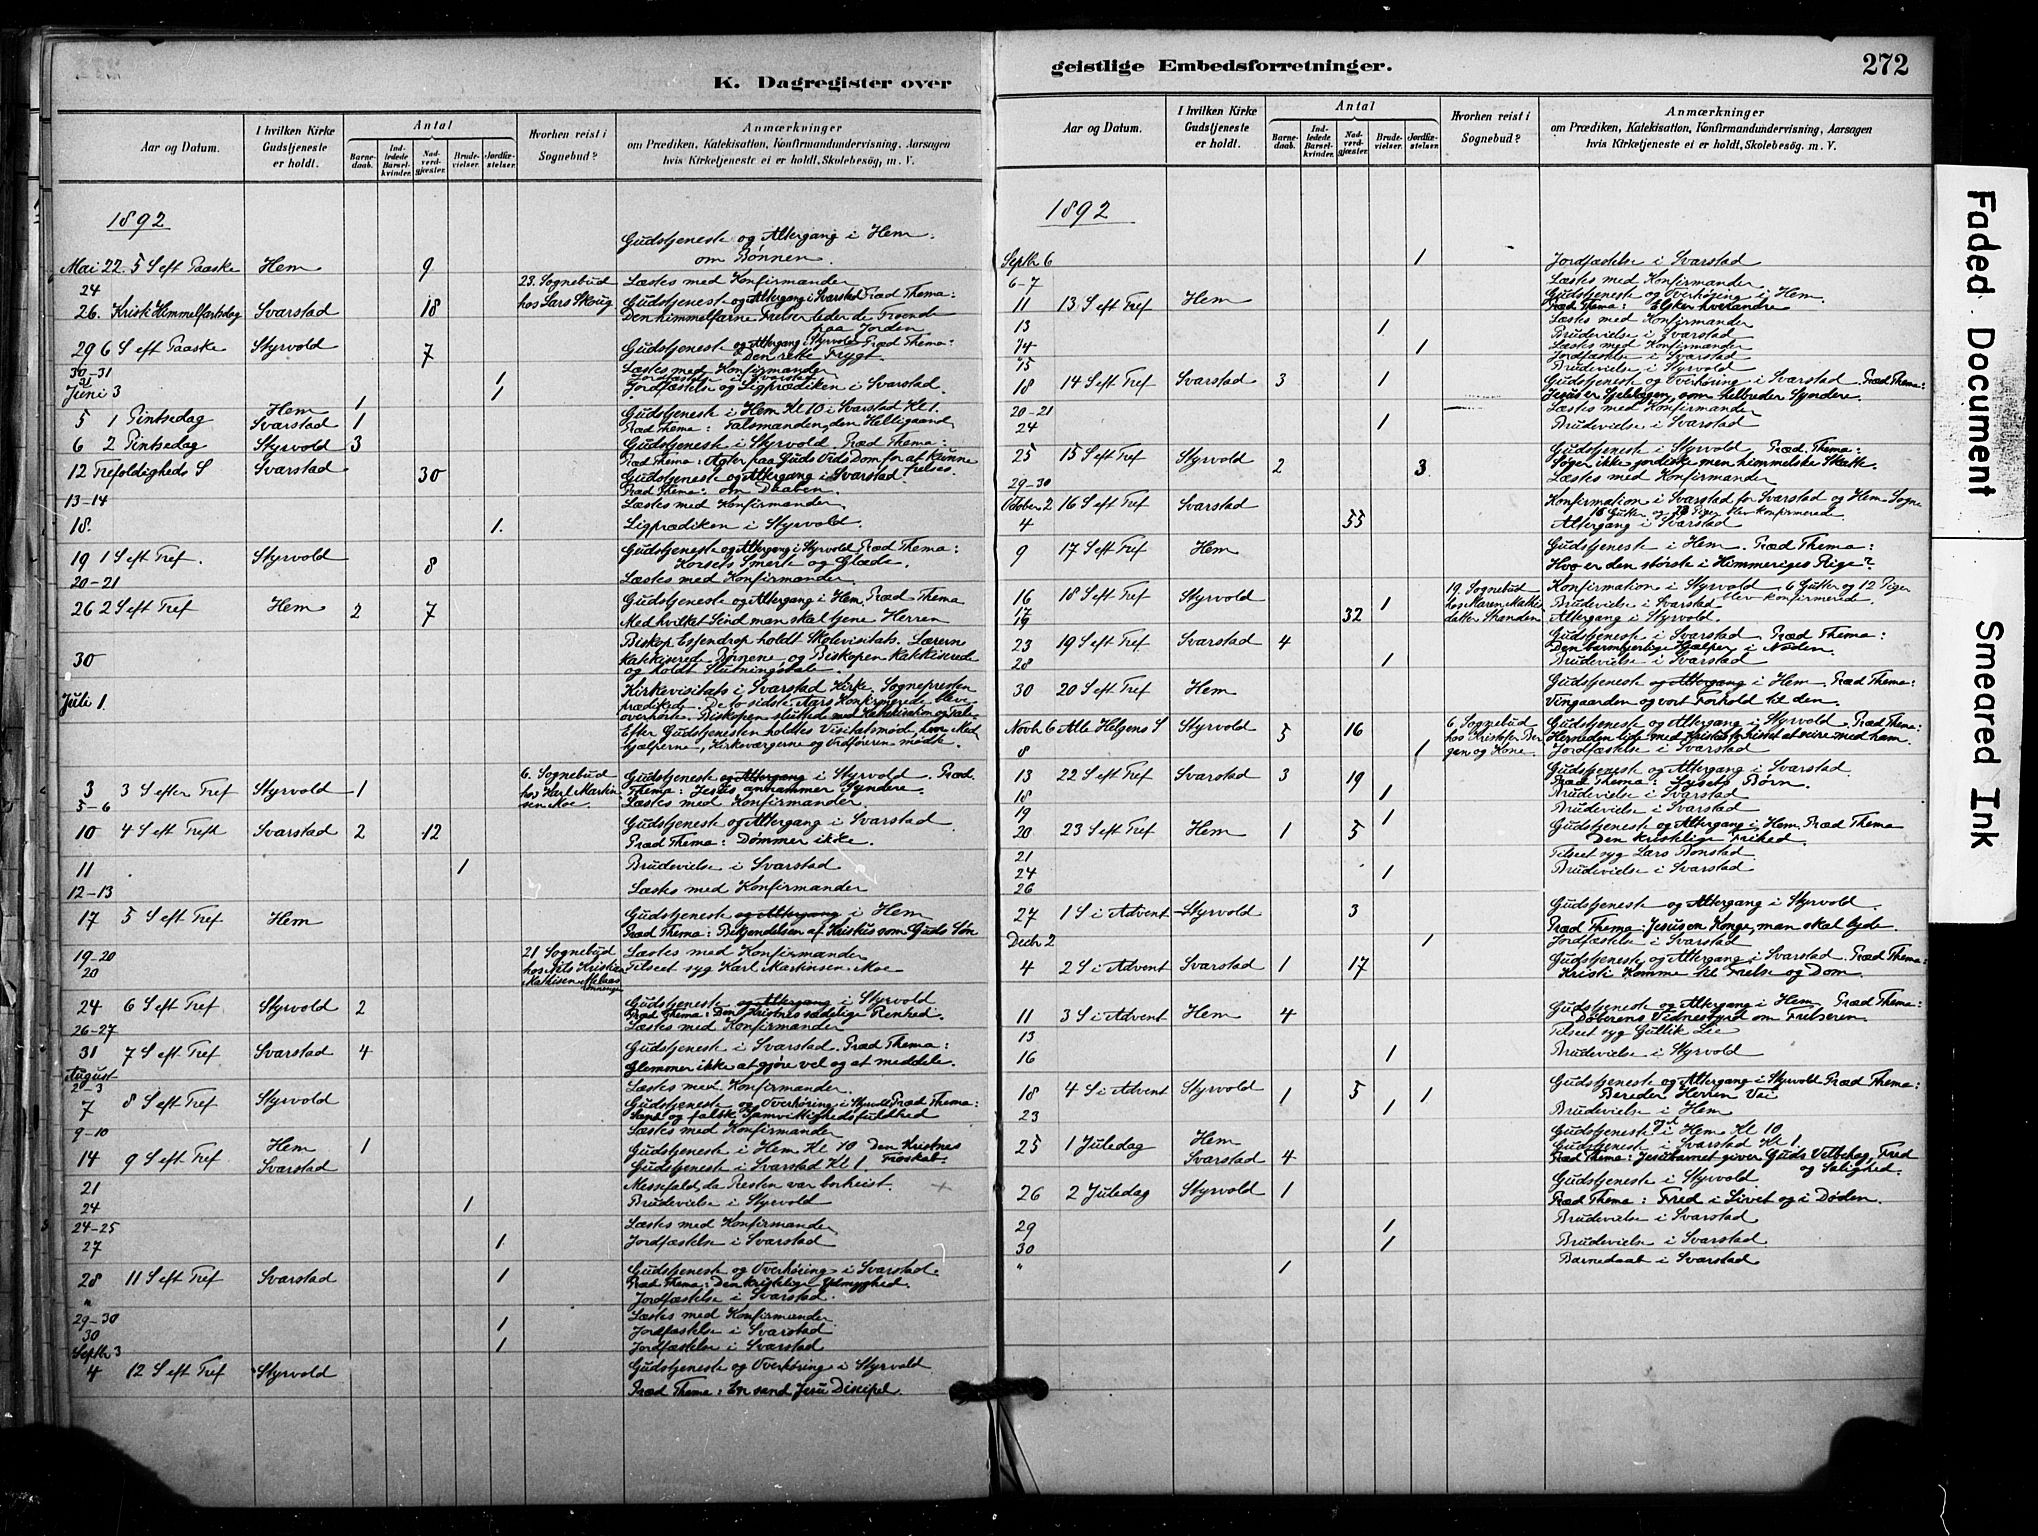 K. Dagregister over
Aar og Datum.
I hvilken Kirke Gudstjeneste er holdt.
Antal
Barnedaab.
Indledede Barselkvinder.
Nadverdgjæster.
Brudevielser.
Jordfæstelser.
Hvorhen reist i Sognebud?
Anmærkninger
om Prædiken, Katekisation, Konfirmandundervisning, Aarsagen
hvis Kirketjeneste ei er holdt, Skolebesøg, m. V.
1892
Gudstjeneste og Altergang i Hem.
Mai 22. 5 S eft Paaske Hem 9 om Bønnen.
24 23. Sognebud Læstes med Konfirmander
26. Kristi Himmelfartsdag Svarstad 18 hos Lars Skoug Gudstjeneste og Altergang i Svarstad Præd Thema:
Den himmelfarne Frelser leder de Troende
paa Jorden
29 6 S eft Paaske Styrvold 7 Gudstjeneste og Altergang i Styrvold Præd Thema:
Den rette Frygt
30-31 Læstes med Konfirmander
31 1 Jordfæstelse i Svarstad
Juni 3 1 Jordfæstelse og Ligprædiken i Svarstad.
5 1 Pintsedag Hem 1 Gudstjeneste i Hem Kl 10 i Svarstad Kl 1.
Svarstad 1 Præd Thema: Talsmanden, den Helligaand
6 2 Pintsedag Styrvold 3 Gudstjeneste i Styrvold. Præd Thema:
Præd Thema: Agter paa Guds Ords Dom for at kunne frelses.
12 Trefoldigheds S Svarstad 30 Gudstjeneste og Altergang i Svarstad.
Præd Thema: om Daaben.
13-14 Læstes med Konfirmander
18. 1. Ligprædiken i Styrvold.
19 1 S eft Tref. Styrvold 8 Gudstjeneste og Altergang i Styrvold Præd Thema:
Korsets Smerte og Glæde.
20-21 Læstes med Konfirmander.
26 2 S eft Tref Hem 2 7 Gudstjeneste og Altergang i Hem. Præd Thema
Med hvilket Sind man skal tjene Herren
30 Biskop Essendrop holdt Skolevisitats. Lærern
katekiserede Børnene, og Biskopen katekiserede
og holdt Slutningstale
Juli 1. Kirkevisitats i Svarstad Kirke. Sognepresten
prædiked. De to sidste Aars Konfirmerede blev
overhørte. Biskopen sluttede med Katekisation og Tale.
Efter Gudstjenesten holdtes Visitatsmøde, hvor Med
hjælperne, Kirkevergerne og Ordføreren mødte.
3 3 S efter Tref Styrvold 1 6. Sognebud hos Karl Martinsen Moe. Gudstjeneste og Altergang i Styrvold. Præd.
Thema: Jesus annammer Syndere.
5-6 Læstes med Konfirmander.
10 4 S eft Treft Svarstad 2 12 Gudstjeneste og Altergang i Svarstad.
Præd Thema: Dømmer ikke.
11 1 Brudevielse i Svarstad
12-13 Læstes med Konfirmander
17 5 S eft Tref Hem Gudstjeneste og Altergang i Hem
Præd Thema: Bekjendelsen af Kristus som Guds Søn
19-20 21 Sognebud Læstes med Konfirmander
20 hos Nils Kristian Mathisen Tilseet syg Karl Martinsen Moe
24 6 S eft Tref Styrvold 2 Gudstjeneste og Altergang i Styrvold
Præd Thema: Den Kristnes sædelige Renhed.
26-27 Læstes med Konfirmander
31 7 S eft Tref Svarstad 4 Gudstjeneste i Svarstad. Præd Thema:
Glemmer ikke at gjøre vel og at meddele
August
2-3 Læstes med Konfirmander.
7 8 S eft Tref Styrvold Gudstjeneste og Overhøring i Styrvold Præd Thema:
Sand og falsk Samvittighedsfuldhed
9-10 Læstes med Konfirmander
14 9 S eft Tref Hem 1 Gudstjeneste i Hem Kl 10 Den Kristnes
Svarstad Gudstjeneste i Svarstad Kl 1. Troskab.
21 Messefald, da Presten var bortreist.
24 1 Brudevielse i Styrvold
24-25 Læstes med Konfirmander
27 1 Jordfæstelse i Svarstad
28 11 S eft Tref Svarstad 1 Gudstjeneste og Overhøring i Svarstad.
Præd Thema: Den kristelige Ydmyghed.
" Jordfæstelse i Svarstad.
29-30 Læstes med Konfirmander
30 1 Jordfæstelse i Svarstad
Septb 3 1 Jordfæstelse i Svarstad
4 12 S eft Tref Styrvold Gudstjeneste og Overhøring i Styrvold
Præd Thema: En sand Jesu Discipel.
geistlige Embedsforretninger.
272
Aar og Datum.
I hvilken Kirke Gudstjeneste er holdt.
Antal
Barnedaab.
Indledede Barselkvinder.
Nadverdgjæster.
Brudevielser.
Jordfæstelser.
Hvorhen reist i Sognebud?
Anmærkninger
om Prædiken, Katekisation, Konfirmandundervisning, Aarsagen
hvis Kirketjeneste ei er holdt, Skolebesøg. m. V.
1892
Septb 6 1 Jordfæstelse i Svarstad
6-7 Læstes med Konfirmander
11 13 S eft Tref Hem Gudstjeneste og Overhøring i Hem.
Præd Thema: Elsker hverandre
13 1 Læstes med Konfirmander
Brudevielse i Svarstad
14 1 Læstes med Konfirmander
Jordfæstelse i Svarstad
15 Brudevielse i Styrvold
18 14 S eft Tref Svarstad 3 1 Gudstjeneste og Overhøring i Svarstad. Præd Thema:
Jesus er Sjelelægen, som helbreder Syndere.
20-21 Læstes med Konfirmander
24 1 Brudevielse i Svarstad
25 15 S eft Tref Styrvold 2 3 Gudstjeneste i Styrvold. Præd Thema:
Søger ikke jordiske men himmelske Skatte.
29-30 Læstes med Konfirmander
Oktober 2 16 S eft Tref Svarstad Konfirmation i Svarstad for Svarstad og Hem Sogne
Gutter og Piger blev konfirmerede
4 55 Altergang i Svarstad
9 17 S eft Tref Hem Gudstjeneste i Hem. Præd Thema:
Hvo er den störste i Himmeriges Rige?
16 18 S eft Tref Styrvold 19 Sognebud Konfirmation i Styrvold 6 Gutter og 12 Piger blev konfirmerede.
17 1 hos Maren Mathisdatter Brudevielse i Svarstad
19 32 Altergang i Styrvold.
23 19 S eft Tref Svarstad 4 Gudstjeneste i Svarstad. Præd Thema:
Den barmhjertige Hjælper i Nøden.
28 1 Brudevielse i Svarstad
30 20 S eft Tref Hem Gudstjeneste og Altergang i Hem. Præd Thema:
Vingaarden og vort Forhold til den.
Novb 6 Alle Helgens S Styrvold 5 16 6 Sognebud hos Kristofer Bergen og Kone Gudstjeneste og Altergang i Styrvold. Præd Thema:
Herneden lide med Kristus for hisset at seire med ham.
8 1 Jordfæstelse i Svarstad
13 22 S eft Tref Svarstad 3 19 Gudstjeneste og Altergang i Svarstad.
Præd Thema: Lysets Børn.
18 1 Brudevielse i Svarstad
19 1 Brudevielse i Svarstad
20 23 S eft Tref Hem 1 5 Gudstjeneste og Altergang i Hem. Præd Thema
Den kristelige Frihed.
21 Tilseet syg Lars Bonstad
24 1 Brudevielse i Svarstad
26
27 1 S i Advent Styrvold 3 Gudstjeneste og Altergang i Styrvold.
Præd Thema: Jesus en Konge, man skal lyde
Decbr 2 1 Jordfæstelse i Svarstad
4 2 S i Advent Svarstad 1 17 Gudstjeneste og Altergang i Svarstad. Præd Thema:
Kristi Komme til Frelse og Dom.
11 3 S i Advent Hem 4 Gudstjeneste og Altergang i Hem. Præd Thema:
Døberens Vidnesbyrd om Frelseren
13 Tilseet syg Gullik Lie
16 1 Brudevielse i Styrvold
18 4 S i Advent Styrvold 1 5 1 Gudstjeneste og Altergang i Styrvold Præd Thema:
Bereder Herren Vei
23 1 Brudevielse i Hem
25 1 Juledag Hem Gudstjeneste i Hem Kl 10
Svarstad 4 Gudstjeneste i Svarstad Kl 1.
Præd Thema: Jesubarnet giver Guds Velbehag, Fred
og Salighed.
26 2 Juledag Styrvold 1 Gudstjeneste i Styrvold
Præd Thema: Fred i Livet og i Døden.
29 1 Brudevielse i Svarstad
30 1 Brudevielse i Svarstad
" 1 Barnedaab i Svarstad
Faded Document
Smeared Ink